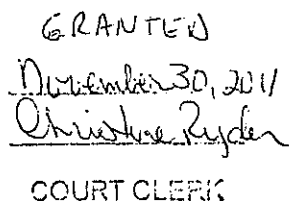 GRANTED
November 30, 2011
Christine Ryder
COURT CLERK